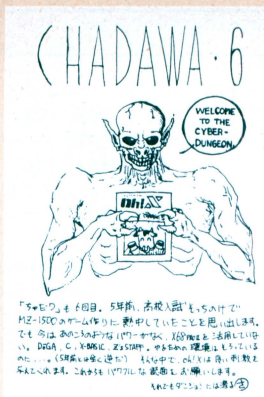 CHADAWA・6
WELCOME
TO THE
CYBER-
DUNGEON.
Oh!X
「ちゃだワ」も6回目。5年前、高校入試そっちのけで
MZ-1500のゲーム作りに熱中していたことを思い出します。
でも今はあのころのようなパワーがなく、X68000を活用していな
い。DōGA、C、X-BASIC、Z'sSTAFF、やるための環境はそろっている
のに...。(5年前とは全く逆だ!)そんな中で、Oh!Xは良い刺激を
与えてくれます。これからもパワフルな誌面をお願いします。
それでもダンジョンは潜る